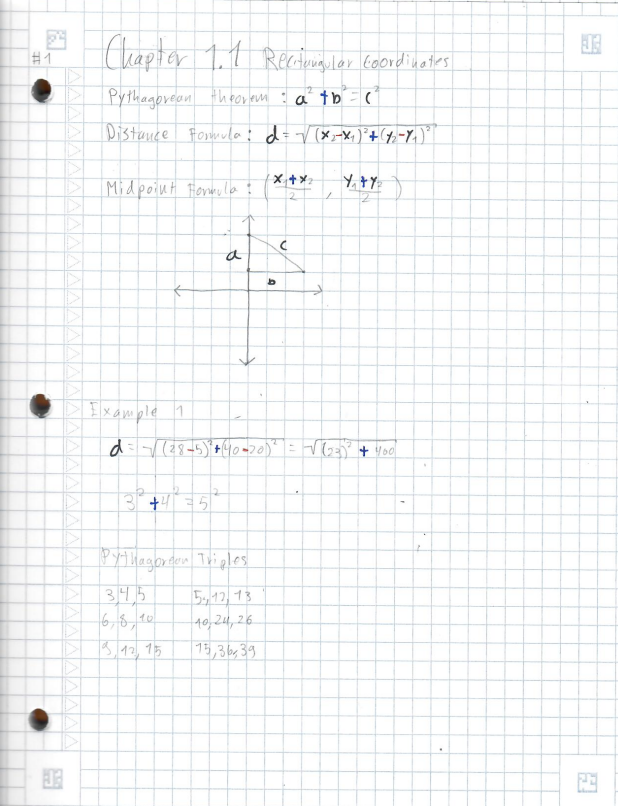 #1
Chapter 1.1 Rectangular Coordinates
Pythagorean theorem : a² + b² = c²
Distance Formula : d = √(x₂-x₁)²+(y₂-y₁)²
Midpoint Formula : (x₁+x₂/2 , y₁+y₂/2)
a c
b
Example 1
d = √(28-5)²+(40-20)² = √(23)² + 400
3² + 4² = 5²
Pythagorean Triples
3,4,5 5,12,13
6,8,10 10,24,26
9,12,15 15,36,39